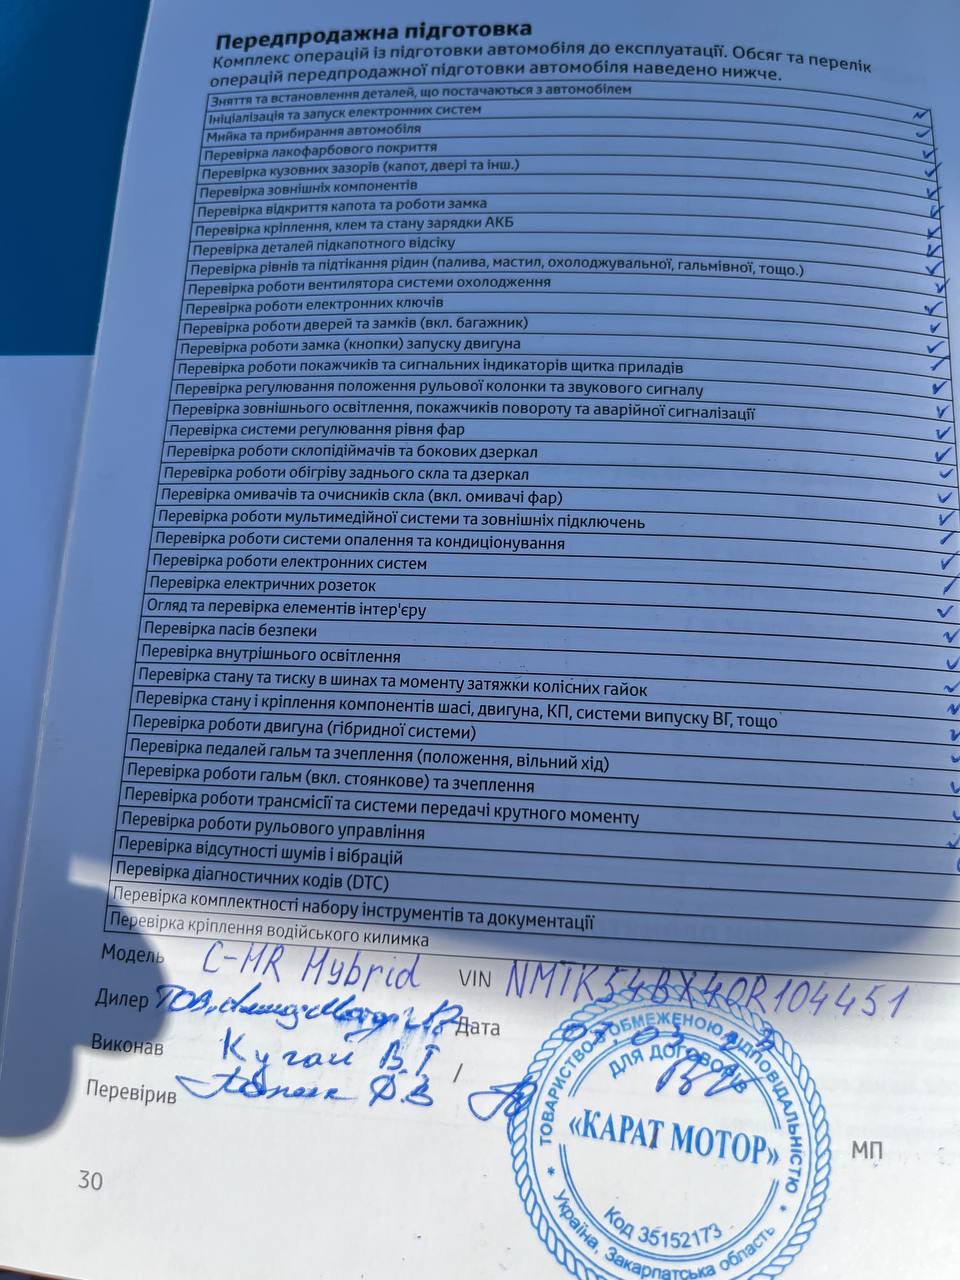 Передпродажна підготовка
Комплекс операцій із підготовки автомобіля до експлуатації. Обсяг та перелік
операцій передпродажної підготовки автомобіля наведено нижче.
Зняття та встановлення деталей, що постачаються з автомобілем
Ініціалізація та запуск електронних систем
Мийка та прибирання автомобіля
Перевірка лакофарбового покриття
Перевірка кузовних зазорів (капот, двері та інш.)
Перевірка зовнішніх компонентів
Перевірка відкриття капота та роботи замка
Перевірка кріплення, клем та стану зарядки АКБ
Перевірка деталей підкапотного відсіку
Перевірка рівнів та підтікання рідин (палива, мастил, охолоджувальної, гальмівної, тощо.)
Перевірка роботи вентилятора системи охолодження
Перевірка роботи електронних ключів
Перевірка роботи дверей та замків (вкл. багажник)
Перевірка роботи замка (кнопки) запуску двигуна
Перевірка роботи покажчиків та сигнальних індикаторів щитка приладів
Перевірка регулювання положення рульової колонки та звукового сигналу
Перевірка зовнішнього освітлення, покажчиків повороту та аварійної сигналізації
Перевірка системи регулювання рівня фар
Перевірка роботи склопідіймачів та бокових дзеркал
Перевірка роботи обігріву заднього скла та дзеркал
Перевірка омивачів та очисників скла (вкл. омивачі фар)
Перевірка роботи мультимедійної системи та зовнішніх підключень
Перевірка роботи системи опалення та кондиціонування
Перевірка роботи електронних систем
Перевірка електричних розеток
Огляд та перевірка елементів інтер'єру
Перевірка пасів безпеки
Перевірка внутрішнього освітлення
Перевірка стану та тиску в шинах та моменту затяжки колісних гайок
Перевірка стану і кріплення компонентів шасі, двигуна, КП, системи випуску ВГ, тощо
Перевірка роботи двигуна (гібридної системи)
Перевірка педалей гальм та зчеплення (положення, вільний хід)
Перевірка роботи гальм (вкл. стоянкове) та зчеплення
Перевірка роботи трансмісії та системи передачі крутного моменту
Перевірка роботи рульового управління
Перевірка відсутності шумів і вібрацій
Перевірка діагностичних кодів (DTC)
Перевірка комплектності набору інструментів та документації
Перевірка кріплення водійського килимка
Модель C-HR Hybrid VIN NMTK34BX40R104451
Дилер ТОВ Дата 03.03
Виконав Кугай В.Т /
Перевірив
ТОВАРИСТВО З ОБМЕЖЕНОЮ ВІДПОВІДАЛЬНІСТЮ
ДЛЯ ДОГОВОРІВ
«КАРАТ МОТОР»
Код 35152173
Україна, Закарпатська область
МП
30